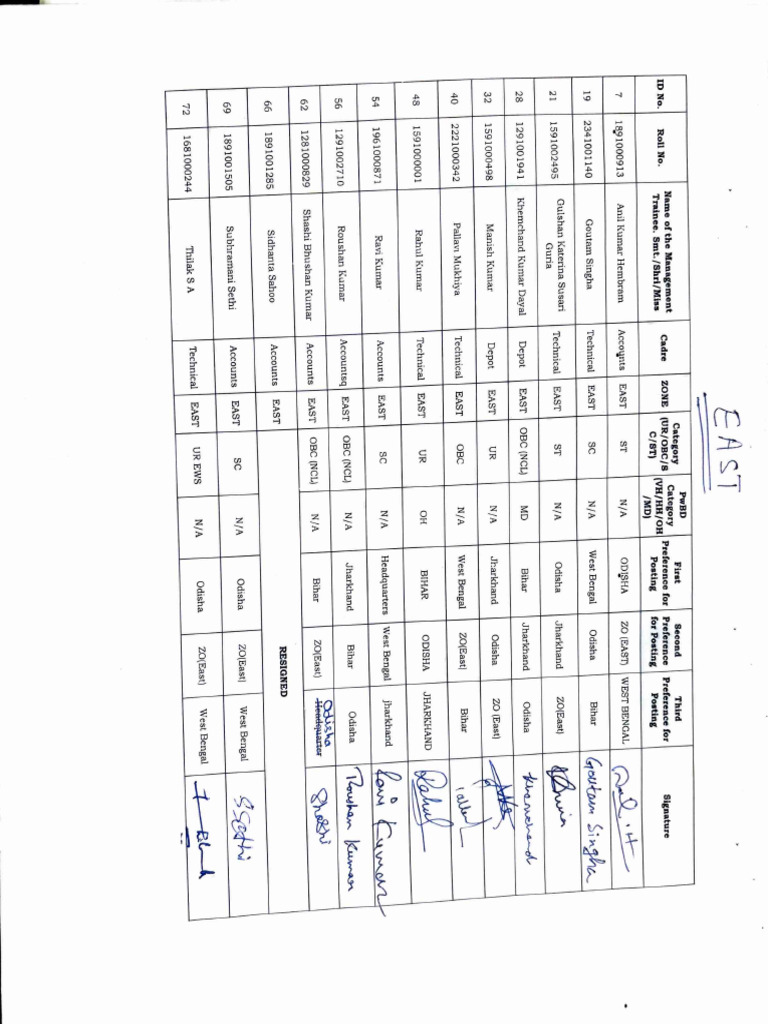 EAST
ID No. Roll No. Name of the Management Trainee. Smt./Shri/Miss Cadre ZONE Category (UR/OBC/SC/ST) PwBD Category (VH/HH/OH/MD) First Preference for Posting Second Preference for Posting Third Preference for Posting Signature
7 1891000913 Anil Kumar Hembram Accounts EAST ST N/A ODISHA ZO (EAST) WEST BENGAL
19 2341001140 Goutam Singha Technical EAST SC N/A West Bengal Odisha Bihar Goutam Singha
21 1591002495 Gulshan Katerina Susari Guria Technical EAST ST N/A Odisha Jharkhand ZO(East)
28 1291001941 Khemchand Kumar Dayal Depot EAST OBC (NCL) MD Bihar Jharkhand Odisha Khemchand
32 1591000498 Manish Kumar Depot EAST UR N/A Jharkhand Odisha ZO (East)
40 2221000342 Pallavi Mukhiya Technical EAST OBC N/A West Bengal ZO(East) Bihar
48 1591000001 Rahul Kumar Technical EAST UR OH BIHAR ODISHA JHARKHAND Rahul
54 1961000871 Ravi Kumar Accounts EAST SC N/A Headquarters West Bengal jharkhand Ravi Kumar
56 1291002710 Roushan Kumar Accountsq EAST OBC (NCL) N/A Jharkhand Bihar Odisha Roushan Kumar
62 1281000829 Shashi Bhushan Kumar Accounts EAST OBC (NCL) N/A Bihar ZO(East) Headquarter Odisha Shashi
66 1891001285 Sidhanta Sahoo Accounts EAST RESIGNED
69 1891001505 Subhramani Sethi Accounts EAST SC N/A Odisha ZO(East) West Bengal S Sethi
72 1681000244 Thilak S A Technical EAST UR EWS N/A Odisha ZO(East) West Bengal